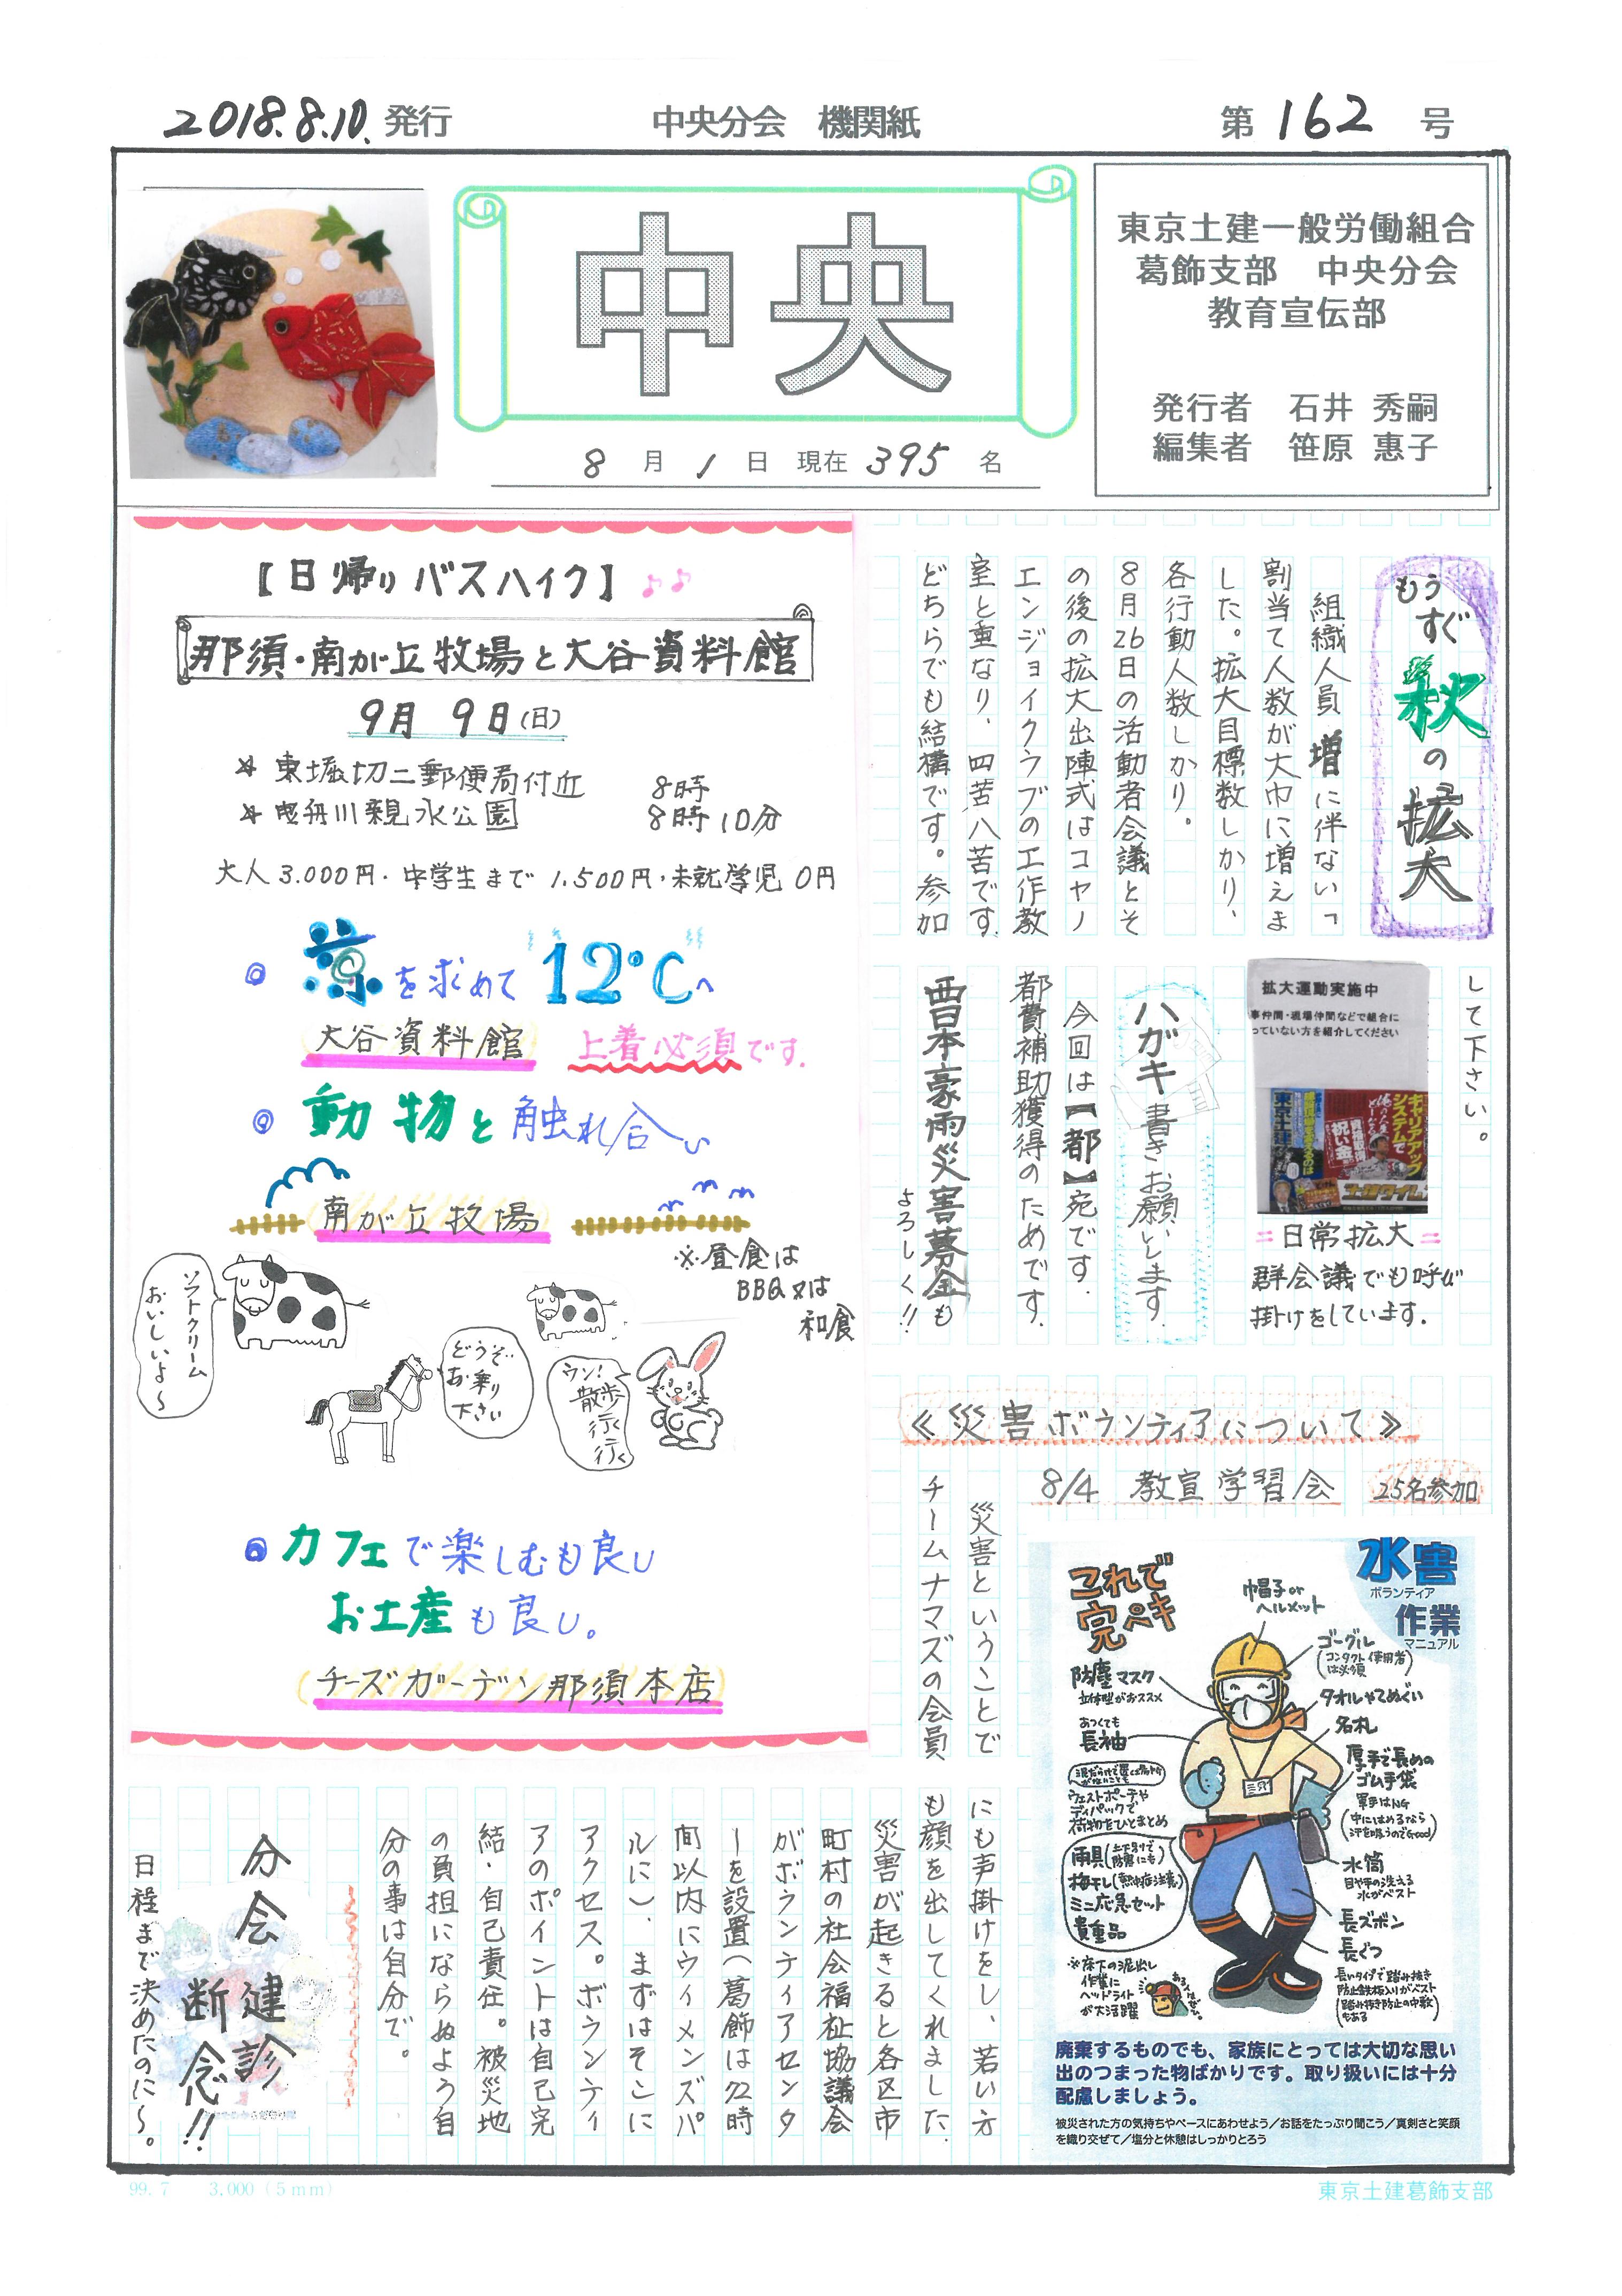 2018.8.10. 発行
中央分会 機関紙
第 162 号
中央
8 月 1 日 現在 395 名
東京土建一般労働組合
葛飾支部 中央分会
教育宣伝部
発行者 石井 秀嗣
編集者 笹原 惠子
もうすぐ秋の拡大
組織人員増に伴ない、
割当て人数が大巾に増えま
した。拡大目標数しかり、
各行動人数しかり。
8月26日の活動者会議とそ
の後の拡大出陣式はコヤノ
エンジョイクラブの工作教
室と重なり、四苦八苦です。
どちらでも結構です。参加
して下さい。
拡大運動実施中
事仲間・現場仲間などで組合に
っていない方を紹介してください
キャリアアップ
システムで
祝い金
東京土建
土建タイム
=日常拡大=
群会議でも呼び
掛けをしています.
ハガキ書きお願いします.
今回は【都】宛です.
都費補助獲得のためです.
西日本豪雨災害募金も
よろしく!!
【日帰りバスハイク】♪♪
那須・南が丘牧場と大谷資料館
9月 9日(日)
東堀切二郵便局付近 8時
曳舟川親水公園 8時10分
大人3.000円・中学生まで1.500円・未就学児0円
◎ 涼を求めて "12℃"へ
大谷資料館 上着必須です.
◎ 動物と触れ合い
南が丘牧場
※昼食は
BBQ又は
和食
ソフトクリーム
おいしいよ〜
どうぞ
お乗り
下さい
ウン!
散歩
行く
行く
◎ カフェで楽しむも良し
お土産も良し。
(チーズガーデン那須本店)
≪災害ボランティアについて≫
8/4 教宣学習会 25名参加
災害ということで
チームナマズの会員
にも声掛けをし、若い方
も顔を出してくれました.
災害が起きると各区市
町村の社会福祉協議会
がボランティアセンタ
ーを設置(葛飾は72時
間以内にウィメンズパ
ルに)、まずはそこに
アクセス。ボランティ
アのポイントは自己完
結・自己責任。被災地
の負担にならぬよう自
分の事は自分で。
水害
ボランティア
作業
マニュアル
これで
完ペキ
帽子or
ヘルメット
ゴーグル
(コンタクト使用者
は必須)
タオルやてぬぐい
名札
厚手で長めの
ゴム手袋
軍手はNG
(中にはめるなら
汗を吸うのでGood)
水筒
目や手の洗える
水がベスト
長ズボン
長ぐつ
長いタイプで踏み抜き
防止鉄板入りがベスト
(踏み抜き防止の中敷
もある)
防塵マスク
立体型がおススメ
あつくても
長袖
ウエストポーチや
ディパックで
荷物をひとまとめ
雨具(土下ろしで防寒にも)
梅干し(熱中症注意)
ミニ応急セット
貴重品
※床下の泥出し
作業に
ヘッドライト
が大活躍
廃棄するものでも、家族にとっては大切な思い
出のつまった物ばかりです。取り扱いには十分
配慮しましょう。
被災された方の気持ちやペースにあわせよう/お話をたっぷり聞こう/真剣さと笑顔
を織り交ぜて/塩分と休憩はしっかりとろう
分会健診
断念!!
日程まで決めたのに〜。
99.7 3,000(5mm)
東京土建葛飾支部